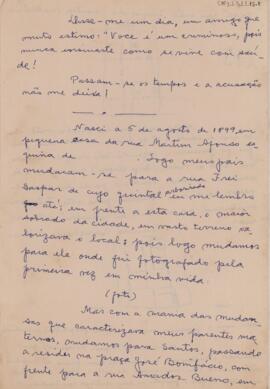 Disse-me um dia, um amigo que
muito estimo: "Você é um criminoso, pois
nunca ensinaste como se vive com saú-
de!
Passam-se os tempos e a acusação
não me deixa!
Nasci a 5 de agosto de 1899, em
pequena casa da rua Martim Afonso es
quina de . Logo meus pais
mudaram-se para a rua Frei
Gaspar de cujo quintal arborizado me lembro
até; em frente a esta casa, o maior
sobrado da cidade, em vasto terreno va
lorizava o local; pois logo mudamos
para ele onde fui fotografado pela
primeira vez em minha vida.
(foto)
Mas com a mania das mudan-
ças que caracterizava meus parentes ma
ternos, mudamos para Santos, passando
a residir na praça José Bonifácio, com
frente para a rua Amador Bueno, em